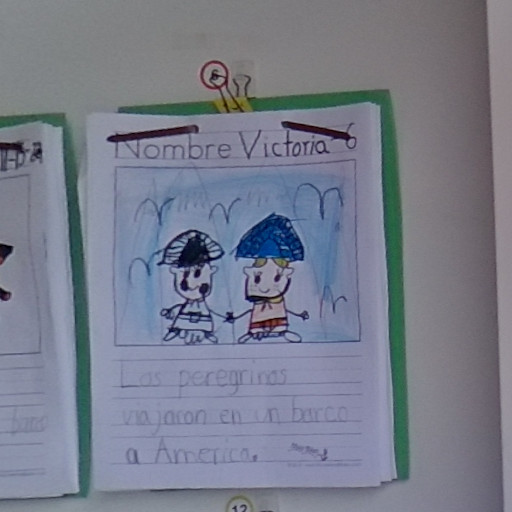 6
Nombre Victoria 6
Los peregrinos
viajaron en un barco
a America.
barco
12